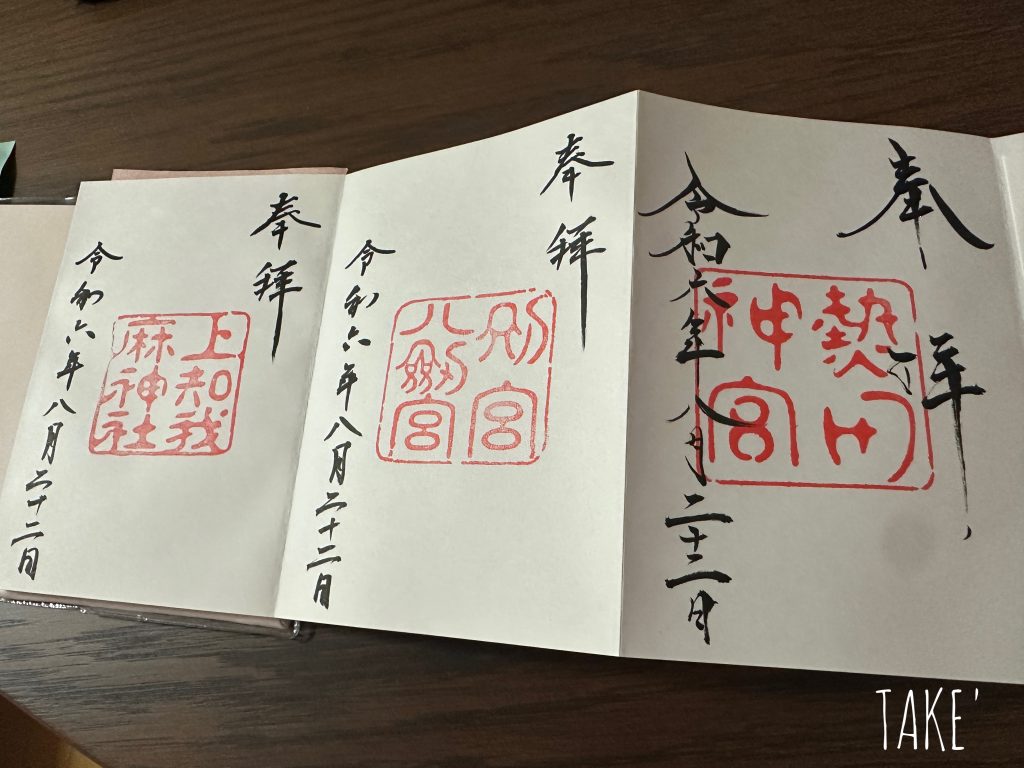 奉拝
熱田
神宮
令和六年八月二十二日
奉拝
別宮
八劔宮
令和六年八月二十二日
奉拝
上知我
麻神社
令和六年八月二十二日
TAKE'